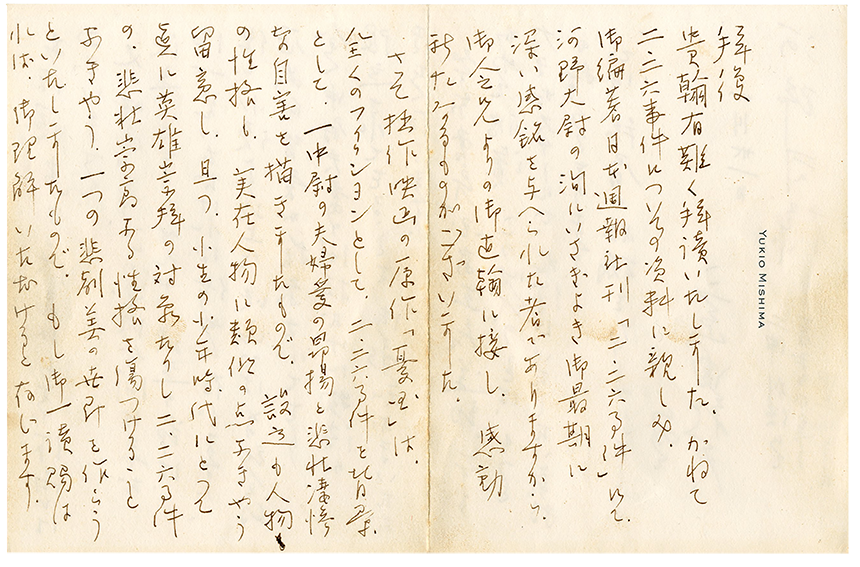 YUKIO MISHIMA
拝復
貴翰有難く拝讀いたしました。かねて
二・二六事件についての資料に親しみ、
御編著日本週報社刊「二・二六事件」にて、
河野大尉の洵にいさぎよき御最期に
深い感銘を与へられた者でありますから、
御令兄よりの御直翰に接し、感動
新たなるものがございました。
さて拙作映画の原作「憂国」は、
全くのフイクシヨンとして、二・二六事件を背景
として、一中尉の夫婦愛の昂揚と悲壮凄惨
な自害を描きましたもので、設定も人物
の性格も、実在人物に類似の点なきやう
留意し、且つ、小生の少年時代にとつて
真に英雄崇拝の対象たりし二・二六事件
の、悲壮崇高なる性格を傷つけること
なきやう、一つの悲劇美の世界を作らう
といたしましたもので、もし御一讀賜は
れば、御理解いただけると存じます。